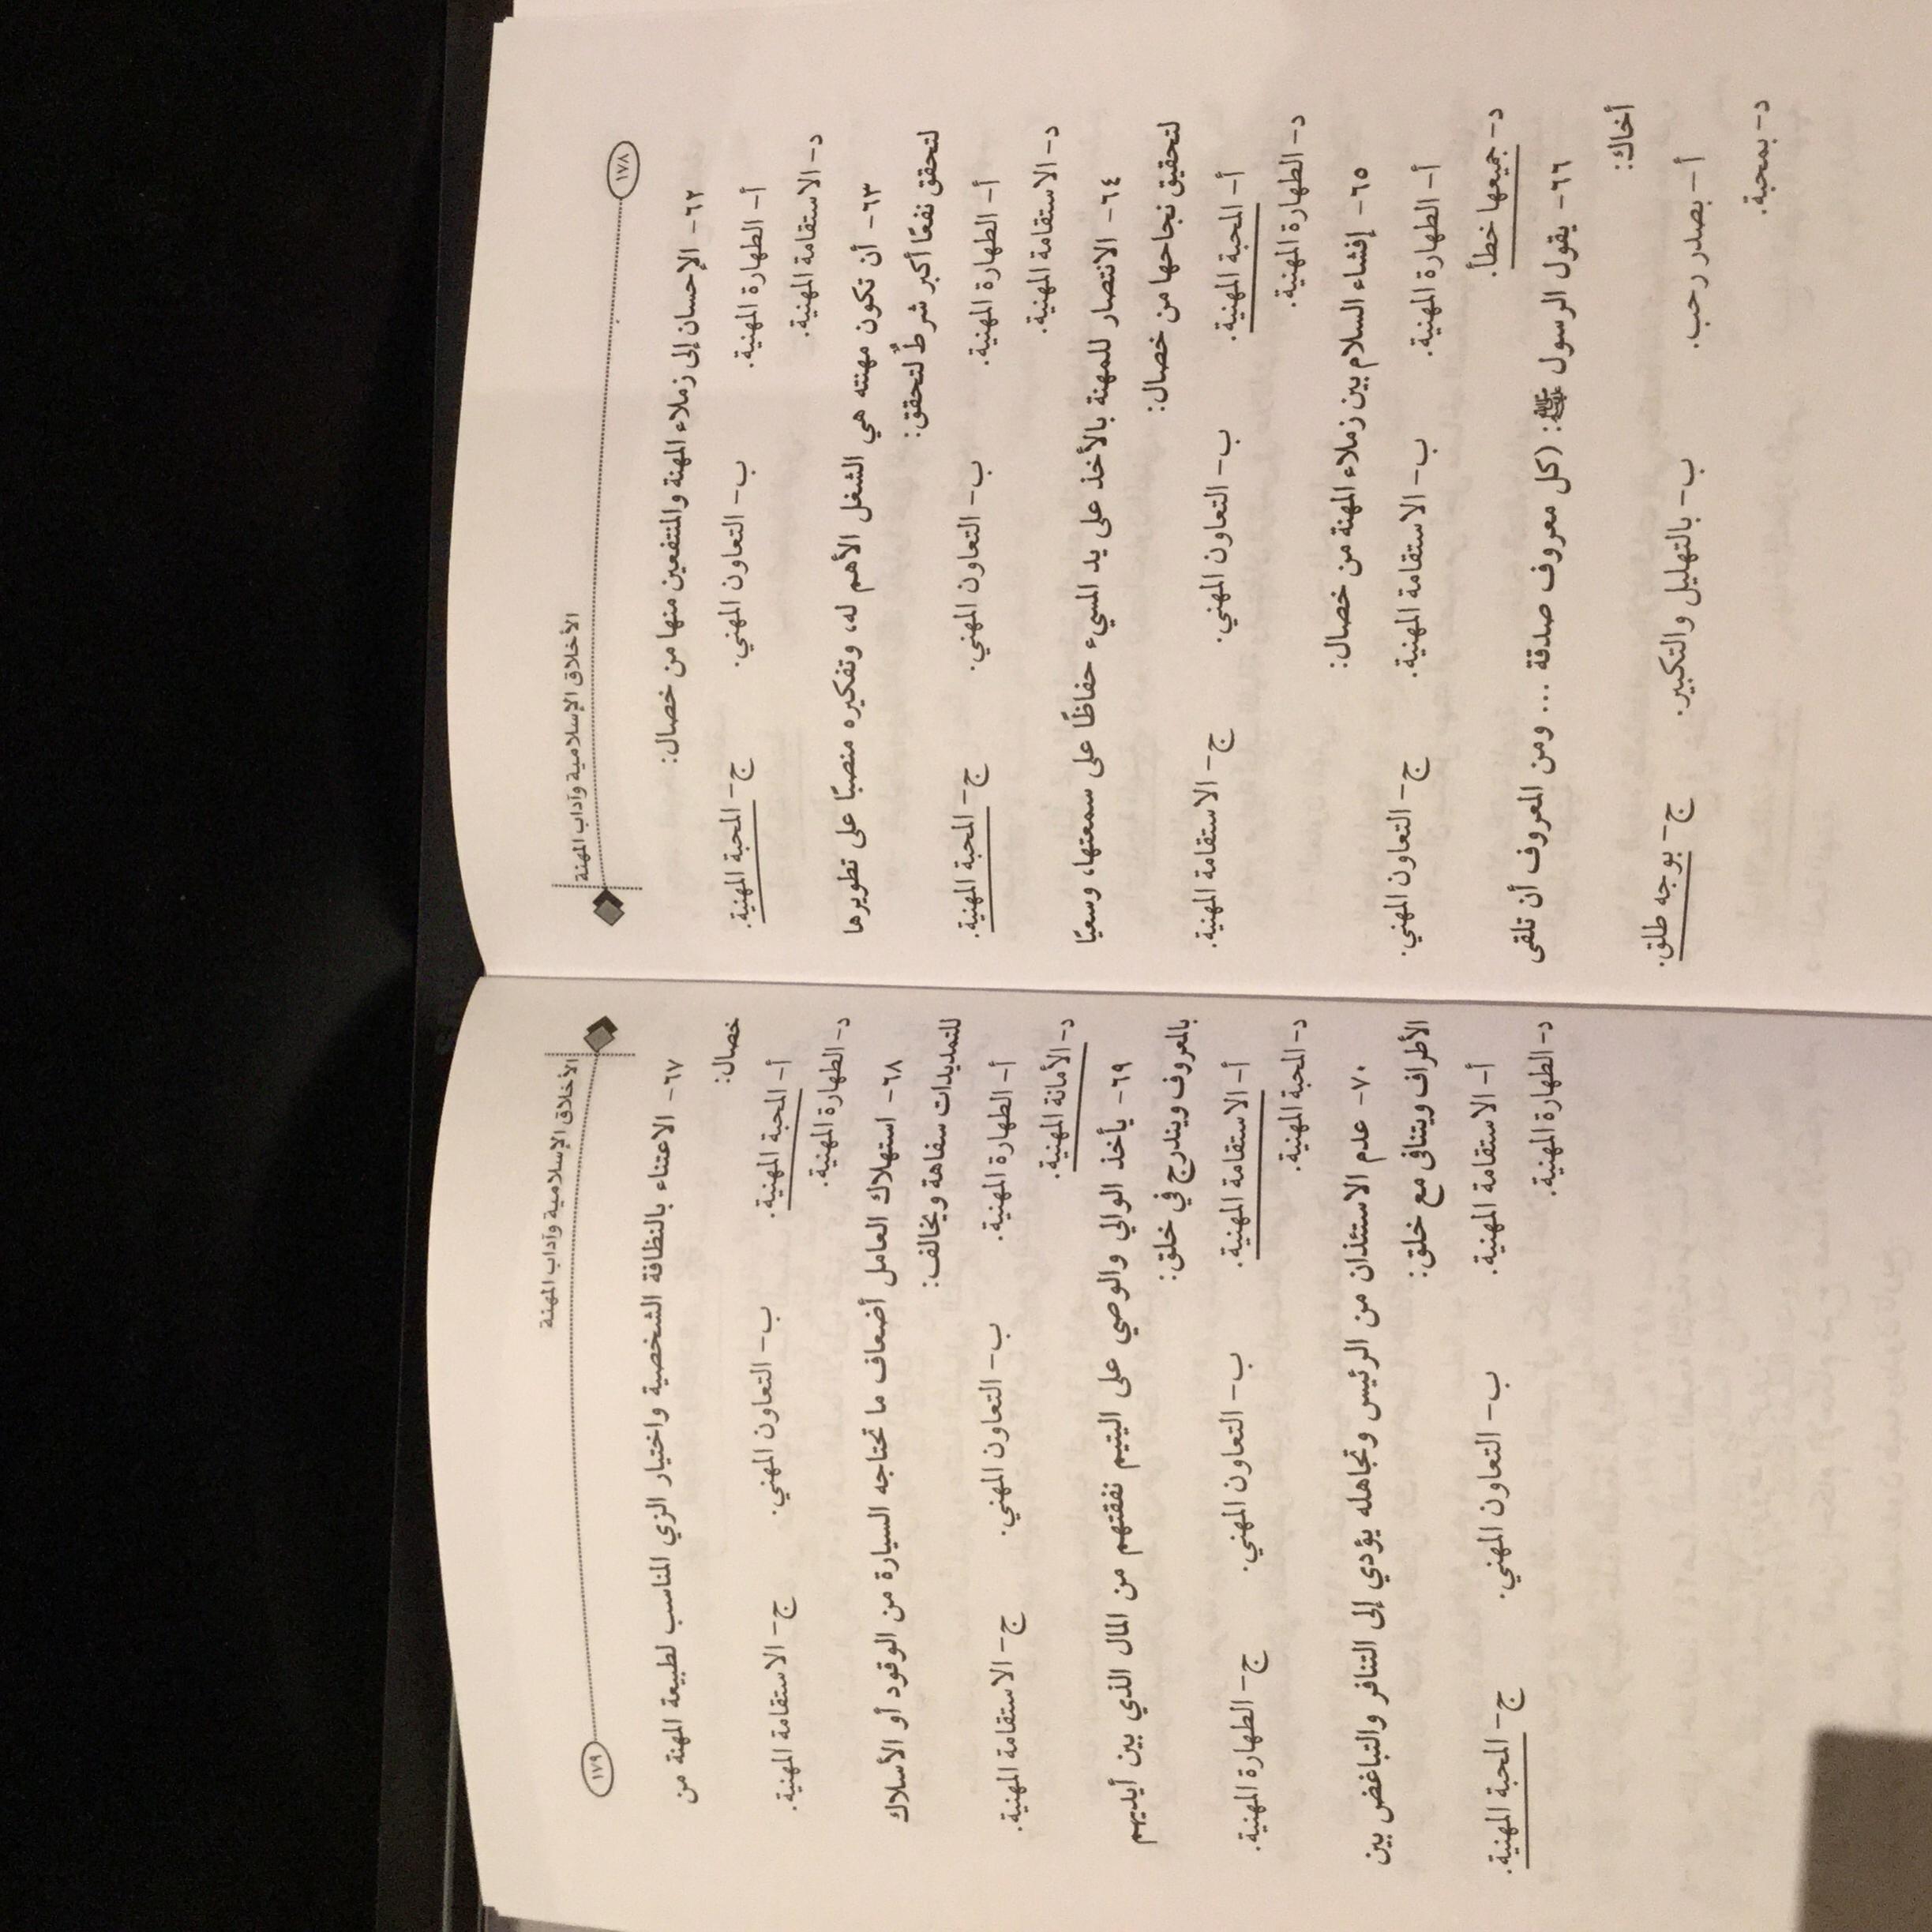 ١٧٨
الأخلاق الإسلامية وآداب المهنة
٦٢- الإحسان إلى زملاء المهنة والمنتفعين منها من خصال:
أ- الطهارة المهنية. ب- التعاون المهني. ج- المحبة المهنية.
د- الاستقامة المهنية.
٦٣- أن تكون مهنته هي الشغل الأهم له، وتفكيره منصبًا على تطويرها
لتحقق نفعًا أكبر شرطٌ لتحقق:
أ- الطهارة المهنية. ب- التعاون المهني. ج- المحبة المهنية.
د- الاستقامة المهنية.
٦٤- الانتصار للمهنة بالأخذ على يد المسيء حفاظًا على سمعتها، وسعيًا
لتحقيق نجاحها من خصال:
أ- المحبة المهنية. ب- التعاون المهني. ج- الاستقامة المهنية.
د- الطهارة المهنية.
٦٥- إفشاء السلام بين زملاء المهنة من خصال:
أ- الطهارة المهنية. ب- الاستقامة المهنية. ج- التعاون المهني.
د- جميعها خطأ.
٦٦- يقول الرسول ﷺ: (كل معروف صدقة ... ومن المعروف أن تلقى
أخاك:
أ- بصدر رحب. ب- بالتهليل والتكبير. ج- بوجه طلق.
د- بمحبة.
الأخلاق الإسلامية وآداب المهنة
١٧٩
٦٧- الاعتناء بالنظافة الشخصية واختيار الزي المناسب لطبيعة المهنة من
خصال:
أ- المحبة المهنية. ب- التعاون المهني. ج- الاستقامة المهنية.
د- الطهارة المهنية.
٦٨- استهلاك العامل أضعاف ما تحتاجه السيارة من الوقود أو الأسلاك
للتمديدات سفاهة ويخالف:
أ- الطهارة المهنية. ب- التعاون المهني. ج- الاستقامة المهنية.
د- الأمانة المهنية.
٦٩- يأخذ الوالي والوصي على اليتيم نفقتهم من المال الذي بين أيديهم
بالمعروف ويندرج في خلق:
أ- الاستقامة المهنية. ب- التعاون المهني. ج- الطهارة المهنية.
د- المحبة المهنية.
٧٠- عدم الاستئذان من الرئيس وتجاهله يؤدي إلى التنافر والتباغض بين
الأطراف ويتنافى مع خلق:
أ- الاستقامة المهنية. ب- التعاون المهني. ج- المحبة المهنية.
د- الطهارة المهنية.